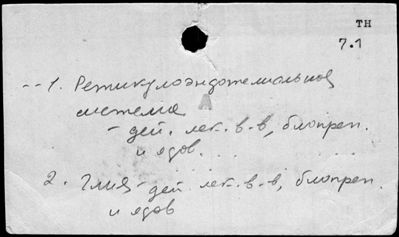 ТН
7.1
-- 1. Ретикулоэндотелиальная
система
А
- дей. лек. в-в, биопреп.
и ядов. . . . .
2. Глия - дей. лек. в-в, биопреп.
и ядов